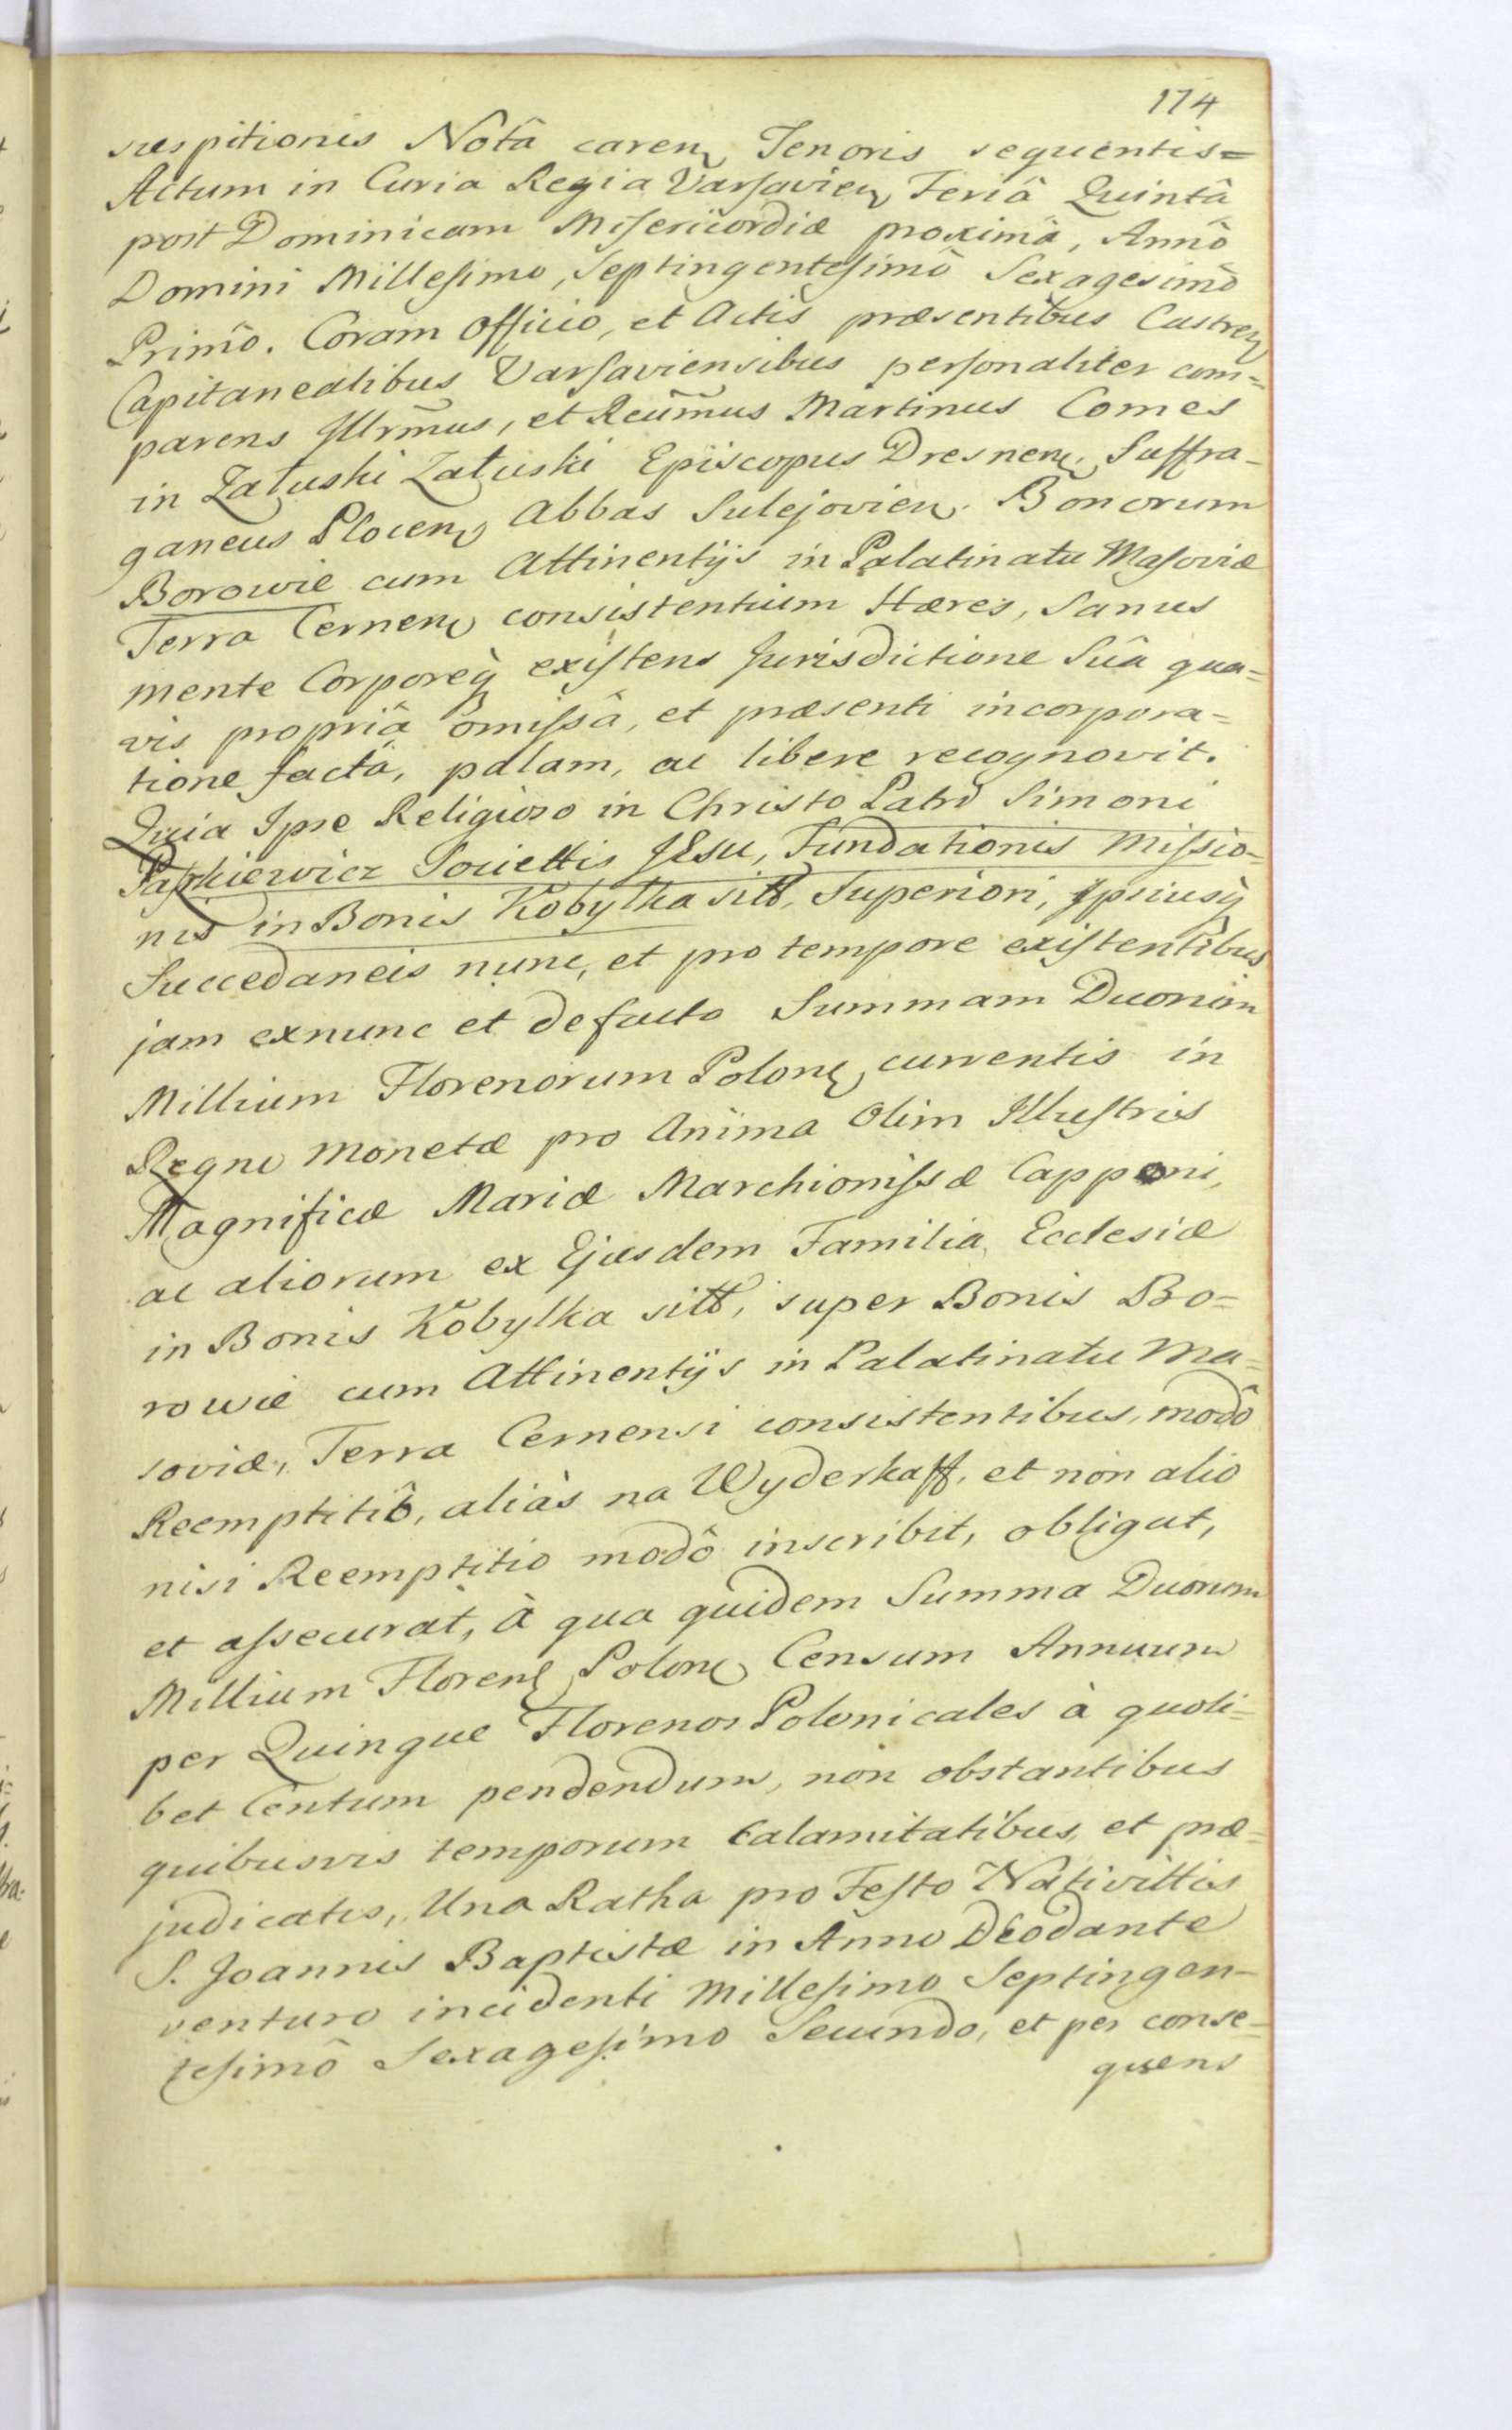 174
suspitionis Notâ caren. Tenoris sequentis=
Actum in Curia Regia Varsavien. Feriâ Quintâ
post Dominicam Misericordiæ proximâ, Annô
Domini Millesimo, Septingentesimô Sexagesimô
Primô. Coram Officio, et Actis præsentibus Castren.
Capitanealibus Varsaviensibus personaliter com=
parens Illrm̃us, et Reũmus Martinus Comes
in Załuski Załuski Episcopus Dresnen. Suffra-
ganeus Plocen. Abbas Sulejovien. Bonorum
Borowie cum Attinentijs in Palatinatu Masoviæ
Terra Cernen. consistentium Hæres, Sanus
mente Corporeq̀ existens Jurisdictione Suâ qua=
vis propriâ omissâ, et præsenti incorpora=
tione factâ, palam, ac libere recognovit.
Quia Ipse Religioso in Christo Patri Simoni
Paszkiewicz Societtis JEsu, Fundationis Missio=
nis in Bonis Kobyłka sitt, Superiori, Ipsiusq̀
Succedaneis nunc, et pro tempore existentibus
jam exnunc et defacto Summam Duorum
Millium Florenorum Polon. currentis in
Regno Monetæ pro Anima Olim Illustris
Magnificæ Mariæ Marchionissæ Capponi,
ac aliorum ex Ejusdem Familia, Ecclesiæ
in Bonis Kobyłka sitt, super Bonis Bo=
rowie cum Attinentijs in Palatinatu Ma=
soviæ, Terra Cernensi consistentibus, modô
Reemptitiô, aliàs na Wyderkaff, et non alio
nisi Reemptitio modô inscribit, obligat,
et assecurat, à qua quidem Summa Duorum
Millium Floren. Polon. Censum Annuum
per Quinque Florenos Polonicales à quoli=
bet Centum pendendum, non obstantibus
quibusvis temporum Calamitatibus, et præ=
judicatis, Una Ratha pro Festo Nativittis
S. Joannis Baptistæ in Anno DEodante
venturo incidenti Millesimo Septingen-
tesimô Sexagesimo Secundo, et per conse=
quens